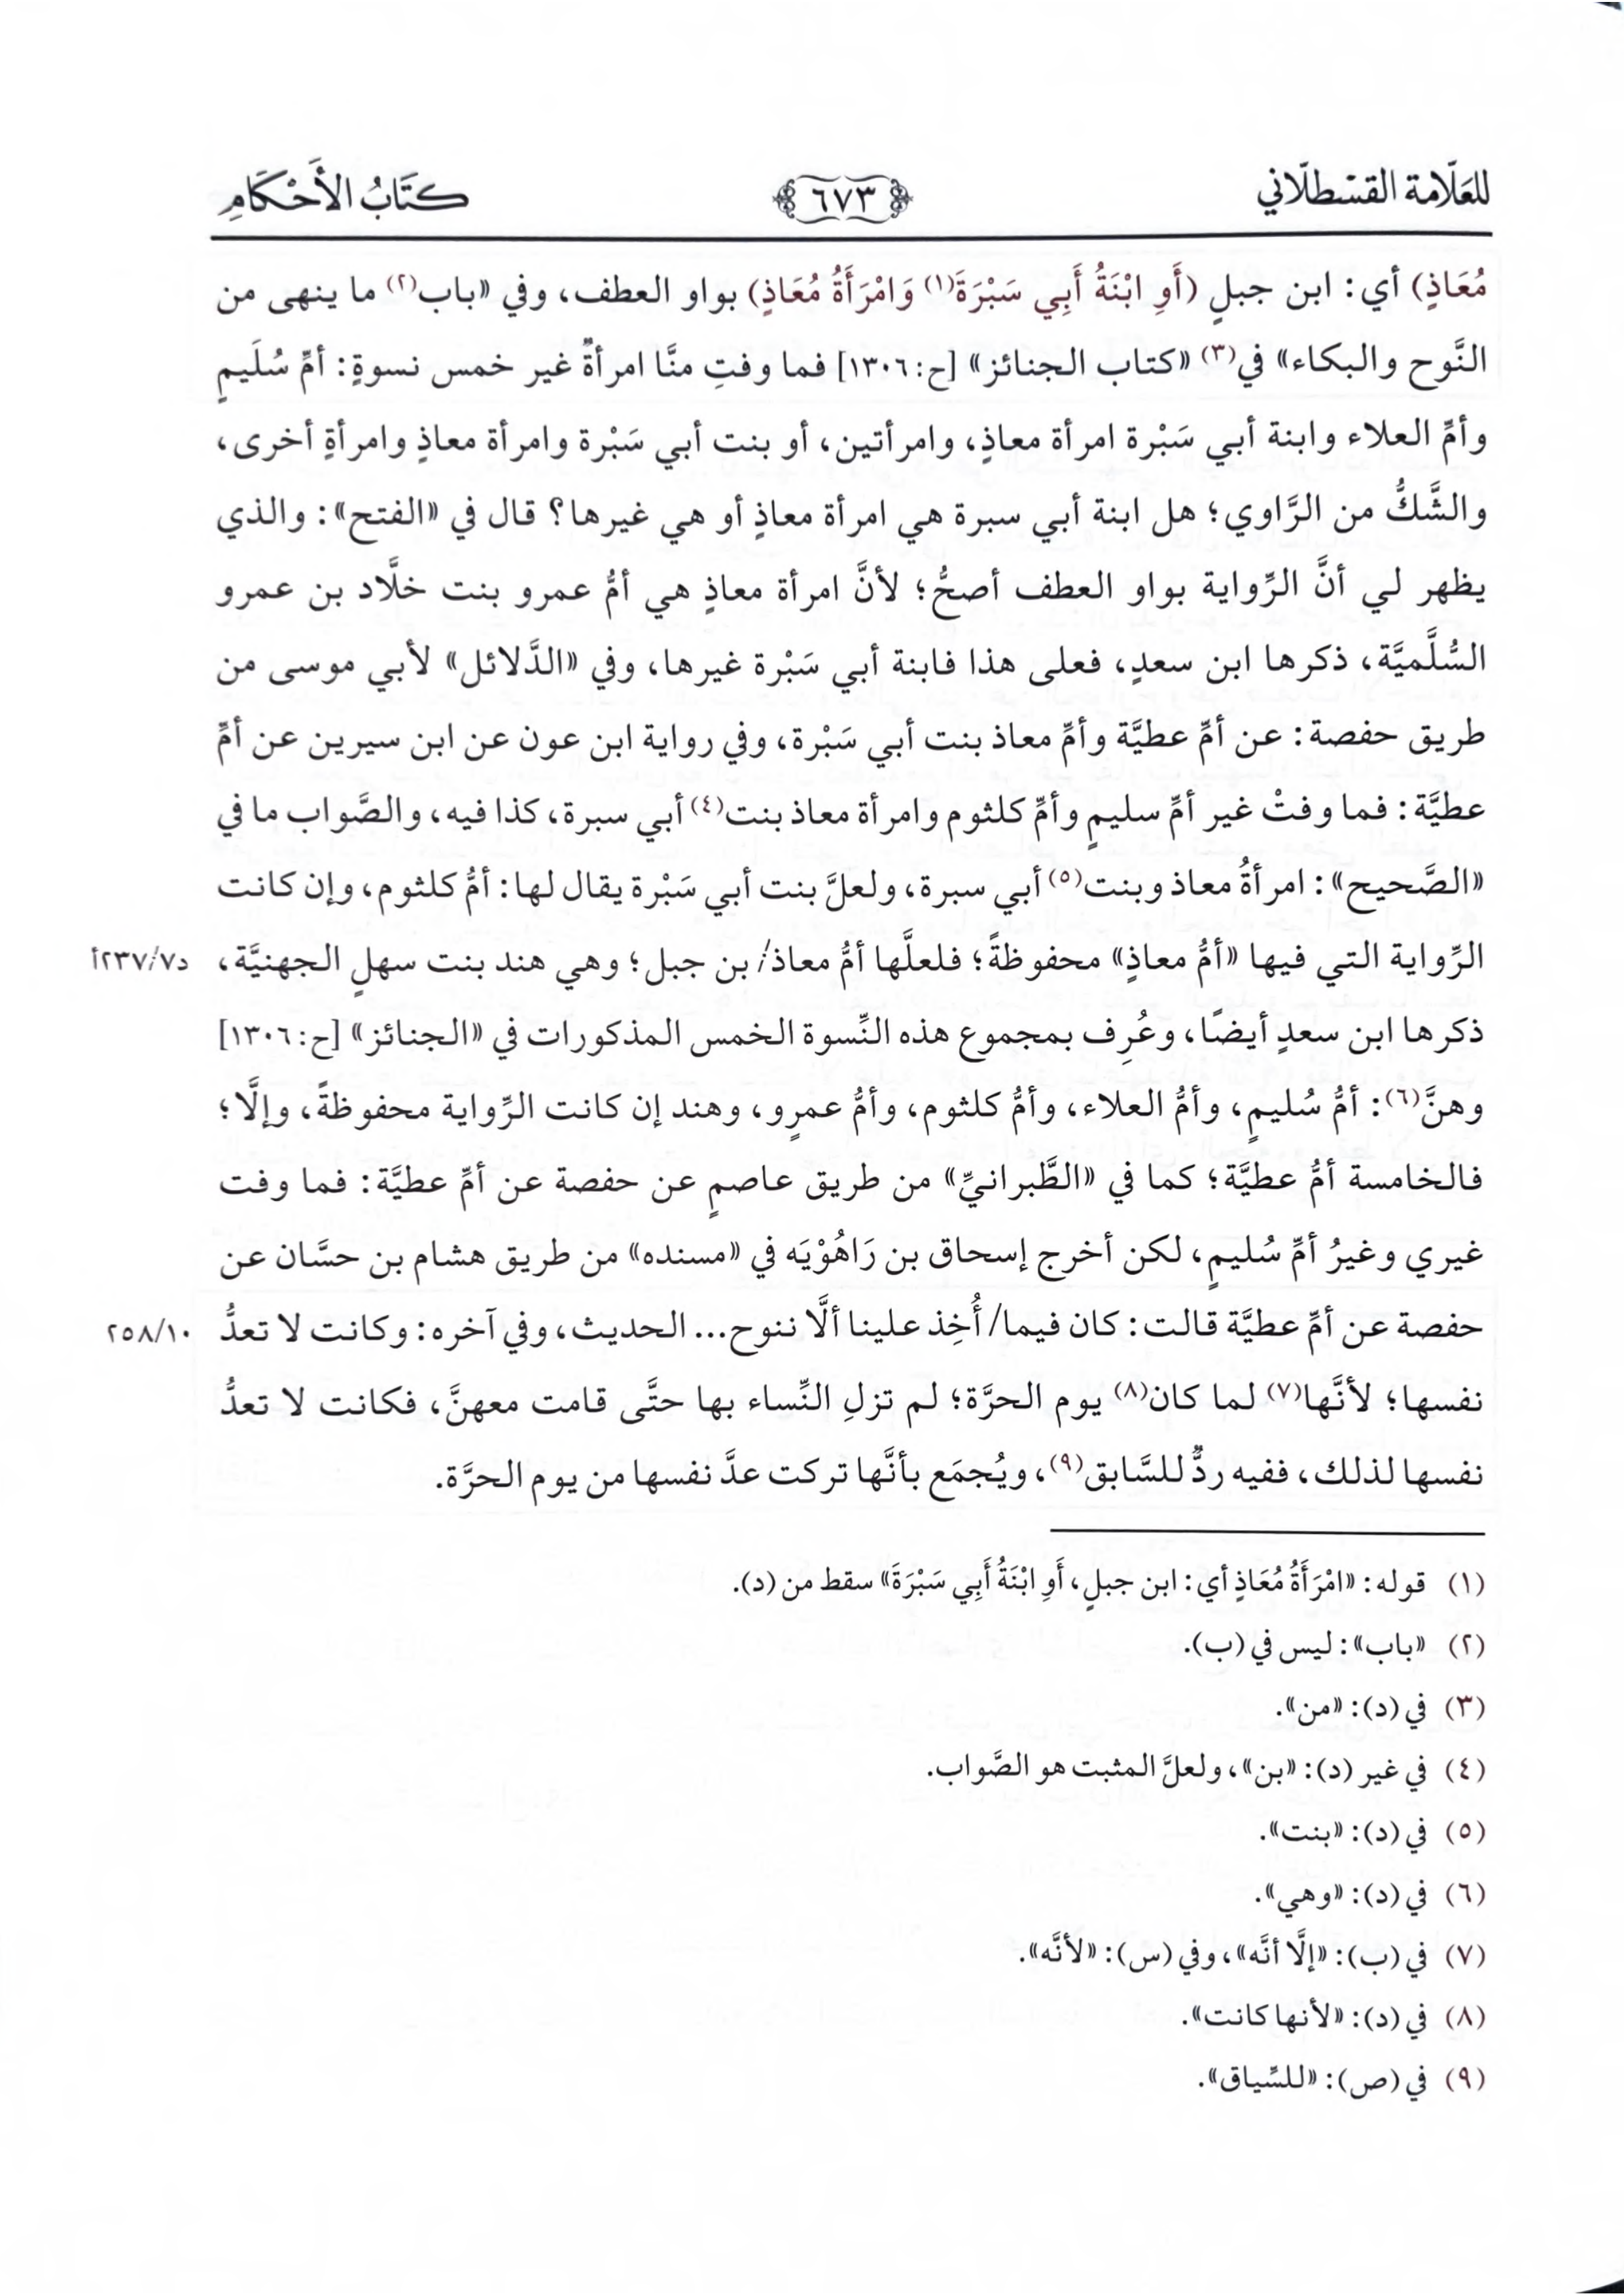 للعلّامة القسطلّاني
٦٧٣
كتَابُ الأَحْكَامِ
مُعَاذٍ) أي: ابن جبلٍ (أَوِ ابْنَةُ أَبِي سَبْرَةَ(١) وَامْرَأَةُ مُعَاذٍ) بواو العطف، وفي «باب(٢) ما ينهى من
النَّوح والبكاء» في(٣) «كتاب الجنائز» [ح: ١٣٠٦] فما وفتِ منَّا امرأةٌ غير خمس نسوةٍ: أمِّ سُلَيمٍ
وأمِّ العلاء وابنة أبي سَبْرة امرأة معاذٍ، وامرأتين، أو بنت أبي سَبْرة وامرأة معاذٍ وامرأةٍ أخرى،
والشَّكُّ من الرَّاوي؛ هل ابنة أبي سبرة هي امرأة معاذٍ أو هي غيرها؟ قال في «الفتح»: والذي
يظهر لي أنَّ الرِّواية بواو العطف أصحُّ؛ لأنَّ امرأة معاذٍ هي أمُّ عمرو بنت خلَّاد بن عمرو
السُّلَّميَّة، ذكرها ابن سعدٍ، فعلى هذا فابنة أبي سَبْرة غيرها، وفي «الدَّلائل» لأبي موسى من
طريق حفصة: عن أمِّ عطيَّة وأمِّ معاذ بنت أبي سَبْرة، وفي رواية ابن عون عن ابن سيرين عن أمِّ
عطيَّة: فما وفتْ غير أمِّ سليمٍ وأمِّ كلثوم وامرأة معاذ بنت(٤) أبي سبرة، كذا فيه، والصَّواب ما في
«الصَّحيح»: امرأةُ معاذ وبنت(٥) أبي سبرة، ولعلَّ بنت أبي سَبْرة يقال لها: أمُّ كلثوم، وإن كانت
الرِّواية التي فيها «أمُّ معاذٍ» محفوظةً؛ فلعلَّها أمُّ معاذ/ بن جبل؛ وهي هند بنت سهلٍ الجهنيَّة،
د٢٣٧/٧أ
ذكرها ابن سعدٍ أيضًا، وعُرِف بمجموع هذه النِّسوة الخمس المذكورات في «الجنائز» [ح: ١٣٠٦]
وهنَّ(٦): أمُّ سُليمٍ، وأمُّ العلاء، وأمُّ كلثوم، وأمُّ عمرٍو، وهند إن كانت الرِّواية محفوظةً، وإلَّا؛
فالخامسة أمُّ عطيَّة؛ كما في «الطَّبرانيِّ» من طريق عاصمٍ عن حفصة عن أمِّ عطيَّة: فما وفت
غيري وغيرُ أمِّ سُليمٍ، لكن أخرج إسحاق بن رَاهُوْيَه في «مسنده» من طريق هشام بن حسَّان عن
حفصة عن أمِّ عطيَّة قالت: كان فيما/ أُخِذ علينا ألَّا ننوح... الحديث، وفي آخره: وكانت لا تعدُّ
٢٥٨/١٠
نفسها؛ لأنَّها(٧) لما كان(٨) يوم الحرَّة؛ لم تزلِ النِّساء بها حتَّى قامت معهنَّ، فكانت لا تعدُّ
نفسها لذلك، ففيه ردٌّ للسَّابق(٩)، ويُجمَع بأنَّها تركت عدَّ نفسها من يوم الحرَّة.
(١) قوله: «امْرَأَةُ مُعَاذٍ أي: ابن جبلٍ، أَوِ ابْنَةُ أَبِي سَبْرَةَ» سقط من (د).
(٢) «باب»: ليس في (ب).
(٣) في (د): «من».
(٤) في غير (د): «بن»، ولعلَّ المثبت هو الصَّواب.
(٥) في (د): «بنت».
(٦) في (د): «وهي».
(٧) في (ب): «إلَّا أنَّه»، وفي (س): «لأنَّه».
(٨) في (د): «لأنها كانت».
(٩) في (ص): «للسِّياق».